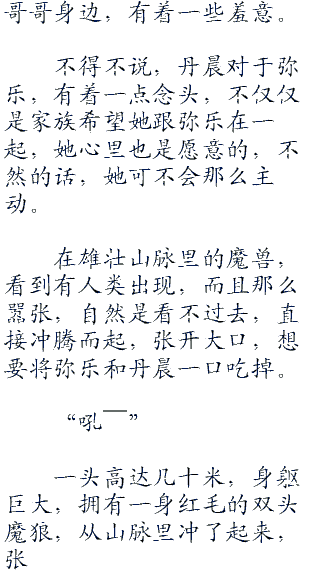 哥哥身边，有着一些羞意。
不得不说，丹晨对于弥
乐，有着一点念头，不仅仅
是家族希望她跟弥乐在一
起，她心里也是愿意的，不
然的话，她可不会那么主
动。
在雄壮山脉里的魔兽，
看到有人类出现，而且那么
嚣张，自然是看不过去，直
接冲腾而起，张开大口，想
要将弥乐和丹晨一口吃掉。
“吼——”
一头高达几十米，身躯
巨大，拥有一身红毛的双头
魔狼，从山脉里冲了起来，
张